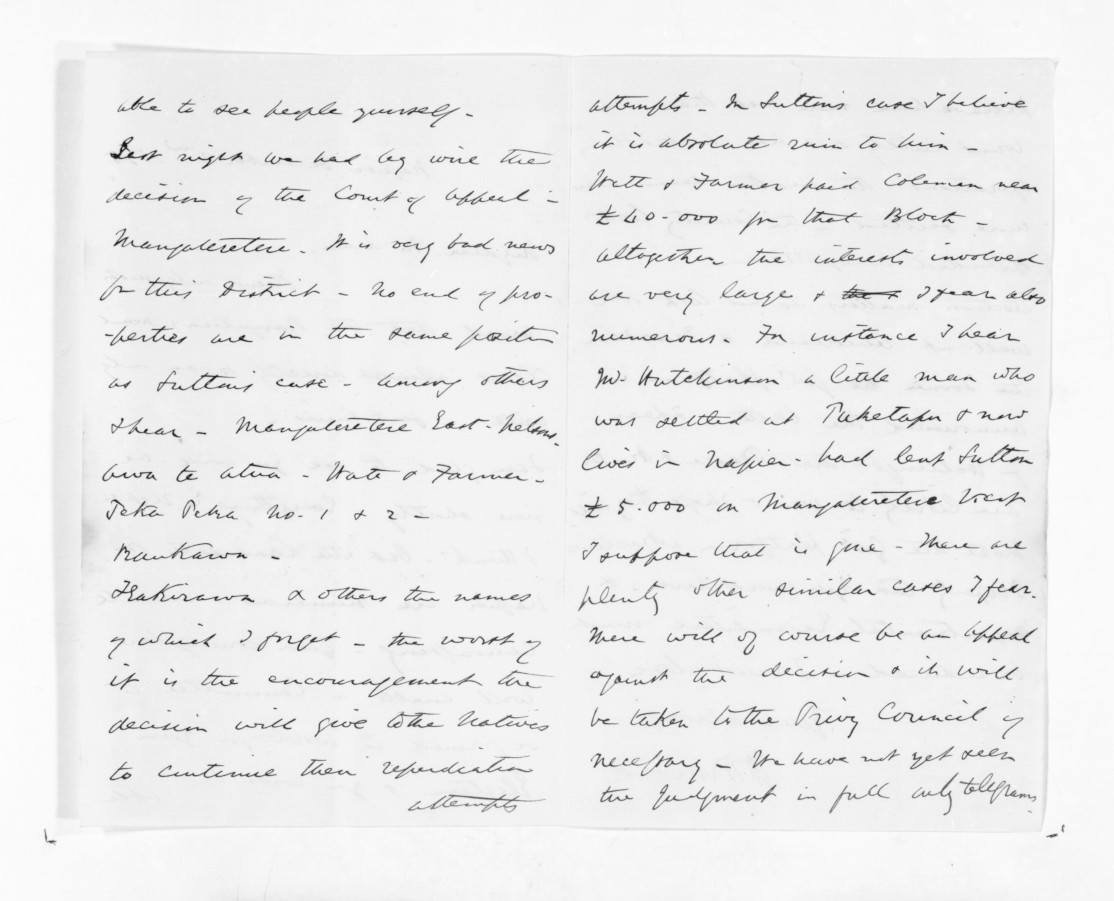 able to see people yourself -
Last night we had by wire the
decision of the Court of Appeal -
Mangateretere. It is very bad news
for this District - No end of pro-
-perties are in the same position
as Sutton's case - Among others
I hear - Mangateretere East - Nelson.
awa te atua - Watt & Farmer -
Teka Teka No. 1 & 2 -
Raukawa -
Ikakirawa & others the names
of which I forget - the worst of
it is the encouragement the
decision will give to the Natives
to continue their repudiation
attempts
attempts - In Sutton's case I believe
it is absolute ruin to him -
Watt & Farmer paid Coleman near
£40.000 for that Block -
altogether the interests involved
are very large & I fear also
numerous. For instance I hear
Mr Hutchinson a little man who
was settled at Puketapu & now
lives in Napier - had lent Sutton
£5.000 on Mangateretere West
I suppose that is gone - There are
plenty other similar cases I fear.
There will of course be an Appeal
against the decision & it will
be taken to the Privy Council if
necessary - We have not yet seen
the Judgment in full only telegrams.